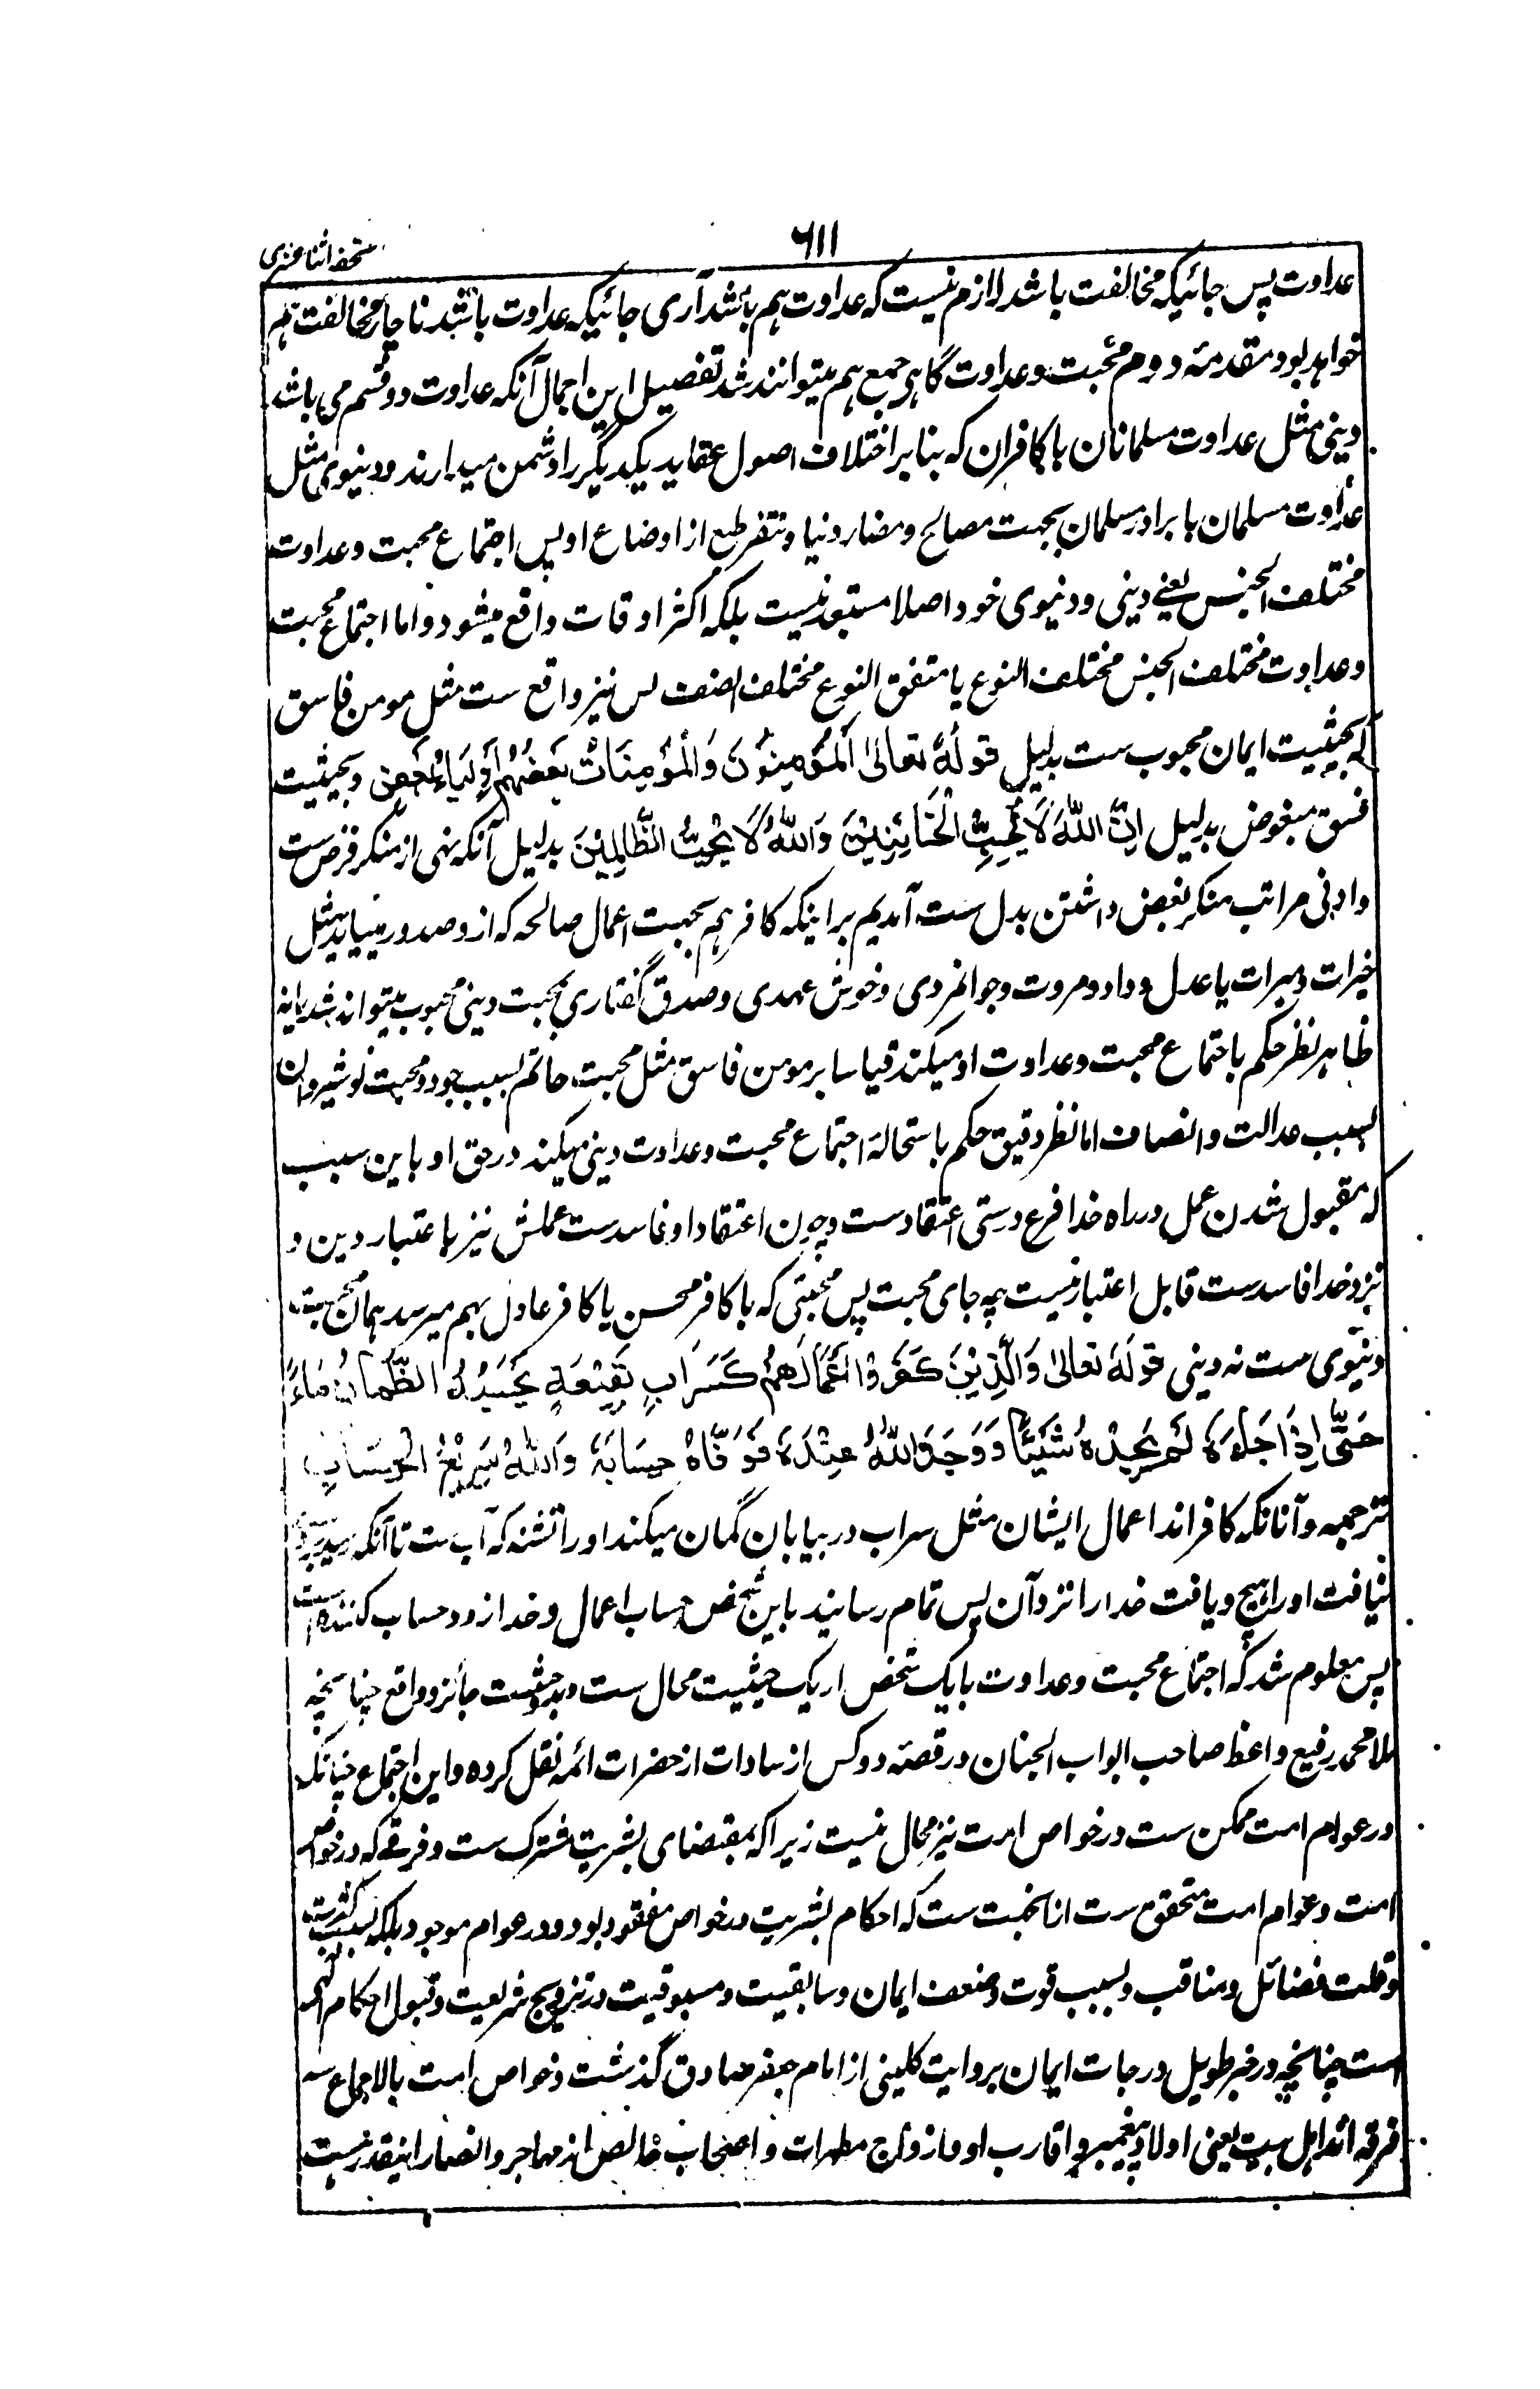 ۶۱۱
تحفہ اثنا عشری
عداوت پس جائیکہ مخالفت باشد لازم نیست کہ عداوت ہم باشد آری جائیکہ عداوت باشد ناچار مخالفت ہم
خواہد بود مقدمۂ دوم محبت و عداوت گاہی جمع ہم میتوانند شد تفصیل این اجمال آنکہ عداوت دو قسم می باشد
دینی مثل عداوت مسلمانان با کافران کہ بنا بر اختلاف اصول عقاید یکدیگر را دشمن میدارند و دنیوی مثل
عداوت مسلمان با برادر مسلمان بجہت مصالح و مضار دنیا و تنفر طبع از اوضاع او پس اجتماع محبت و عداوت
مختلف الجنس یعنی دینی و دنیوی خود اصلا مستبعد نیست بلکہ اکثر اوقات واقع میشود و اما اجتماع محبت
و عداوت مختلف الجنس مختلف النوع یا متفق النوع مختلف الصنف پس نیز واقع ست مثل مومن فاسق
کہ بحیثیت ایمان محبوب ست بدلیل قولہ تعالیٰ اَلْمُؤْمِنُوْنَ وَالْمُؤْمِنَاتُ بَعْضُهُمْ اَوْلِيَاءُ بَعْضٍ و بحیثیت
فسق مبغوض بدلیل اِنَّ اللّٰهَ لَا يُحِبُّ الْخَائِنِيْنَ وَاللّٰهُ لَا يُحِبُّ الظَّالِمِيْنَ بدلیل آنکہ نہی از منکر فرض ست
و ادنی مراتب منکر بغض داشتن بدل ست آمدیم بر اینکہ کافر ہم بجہت اعمال صالحہ کہ از و صدور مییابد مثل
خیرات و مبرات یا عدل و داد و مروت و جوانمردی و خوش عہدی و صدق گفتاری بمحبت دینی محبوب میتواند شد یا نہ
ظاہر نظر حکم باجتماع محبت و عداوت او میکند قیاسا بر مومن فاسق مثل محبت حاتم بسبب جود و محبت نوشیروان
بسبب عدالت و انصاف اما نظر دقیق حکم باستحالۂ اجتماع محبت و عداوت دینی میکند در حق او باین سبب
کہ مقبول شدن عمل در راہ خدا فرع درستی اعتقادست و چون اعتقاد او فاسدست عملش نیز باعتبار دین و
نزد خدا فاسدست قابل اعتبار نیست چہ جای محبت پس محبتی کہ با کافر محسن یا کافر عادل بہم میرسد ہمان محبت
دنیوی ست نہ دینی قولہ تعالیٰ وَالَّذِيْنَ كَفَرُوْا اَعْمَالُهُمْ كَسَرَابٍ بِقِيْعَةٍ يَحْسَبُهُ الظَّمْاٰنُ مَاءً
حَتّٰى اِذَا جَاءَهٗ لَمْ يَجِدْهُ شَيْئًا وَوَجَدَ اللّٰهَ عِنْدَهٗ فَوَفَّاهُ حِسَابَهٗ وَاللّٰهُ سَرِيْعُ الْحِسَابِ
ترجمہ و آنانکہ کافراند اعمال ایشان مثل سراب در بیابان گمان میکند او را تشنہ کہ آب ست تا آنکہ
نیافت او را ہیچ و یافت خدا را نزد آن پس تمام رسانید باین شخص حساب اعمال و خدا زود حساب کنندہ است
پس معلوم شد کہ اجتماع محبت و عداوت با یک شخص از یک حیثیت محال ست و بدو حیثیت جائز و واقع چنانچہ
ملا محمد رفیع واعظ صاحب ابواب الجنان در قصۂ دو کس از سادات از حضرات ائمہ نقل کردہ و این اجتماع چنانکہ
در عوام امت ممکن ست در خواص امت نیز محال نیست زیرا کہ بمقتضای بشریت مشترک ست و فرقے کہ در خواص
امت و عوام امت متحقق ست نہ از انجہت ست کہ احکام بشریت در خواص مفقود بود و در عوام موجود بلکہ بسبب کثرت
و قلت فضائل و مناقب و بسبب قوت و ضعف ایمان و سابقیت و مسبوقیت در ترویج شریعت و قبول احکام الٰہی
است چنانچہ در خبر طویل درجات ایمان بروایت کلینی از امام جعفر صادق گذشت و خواص امت بالاجماع سہ
فرقہ اند اہل بیت یعنی اولاد پیغمبر و اقارب او و ازواج مطہرات و اصحاب خالص از مہاجر و انصار اینقدر نیست